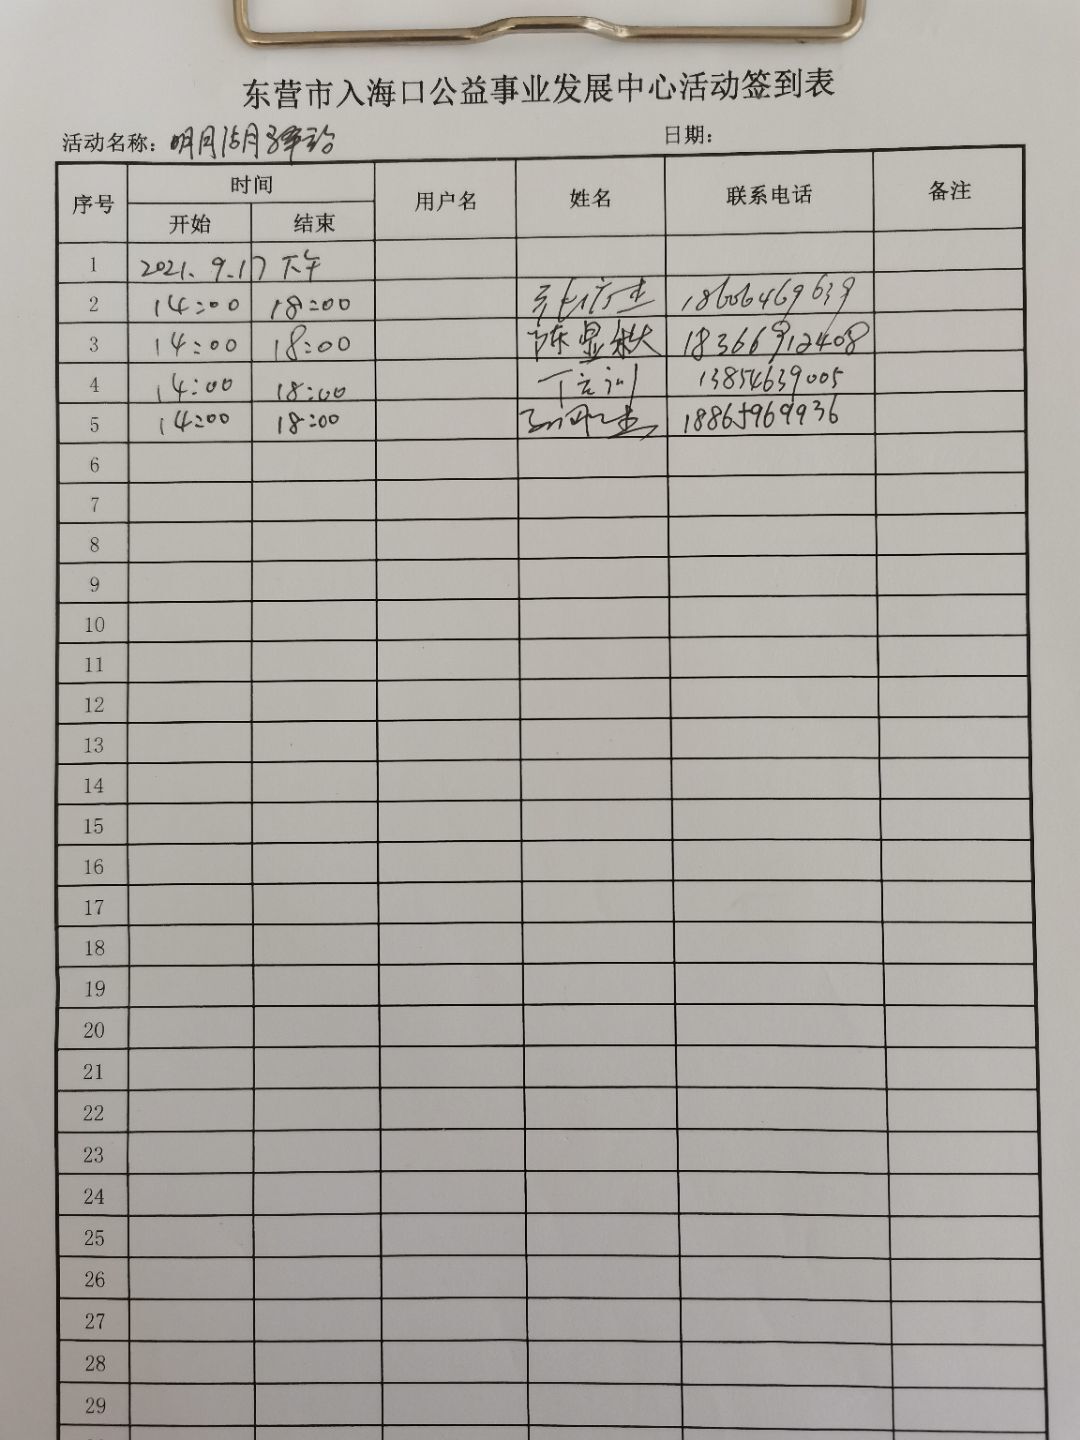 东营市入海口公益事业发展中心活动签到表
活动名称：明月清月
日期：
序号 时间 用户名 姓名 联系电话 备注
开始 结束
1 2021.9.17下午
2 14:00 18:00 18606469639
3 14:00 18:00 陈显秋 18366912408
4 14:00 18:00 13854639005
5 14:00 18:00 18865969936
6
7
8
9
10
11
12
13
14
15
16
17
18
19
20
21
22
23
24
25
26
27
28
29